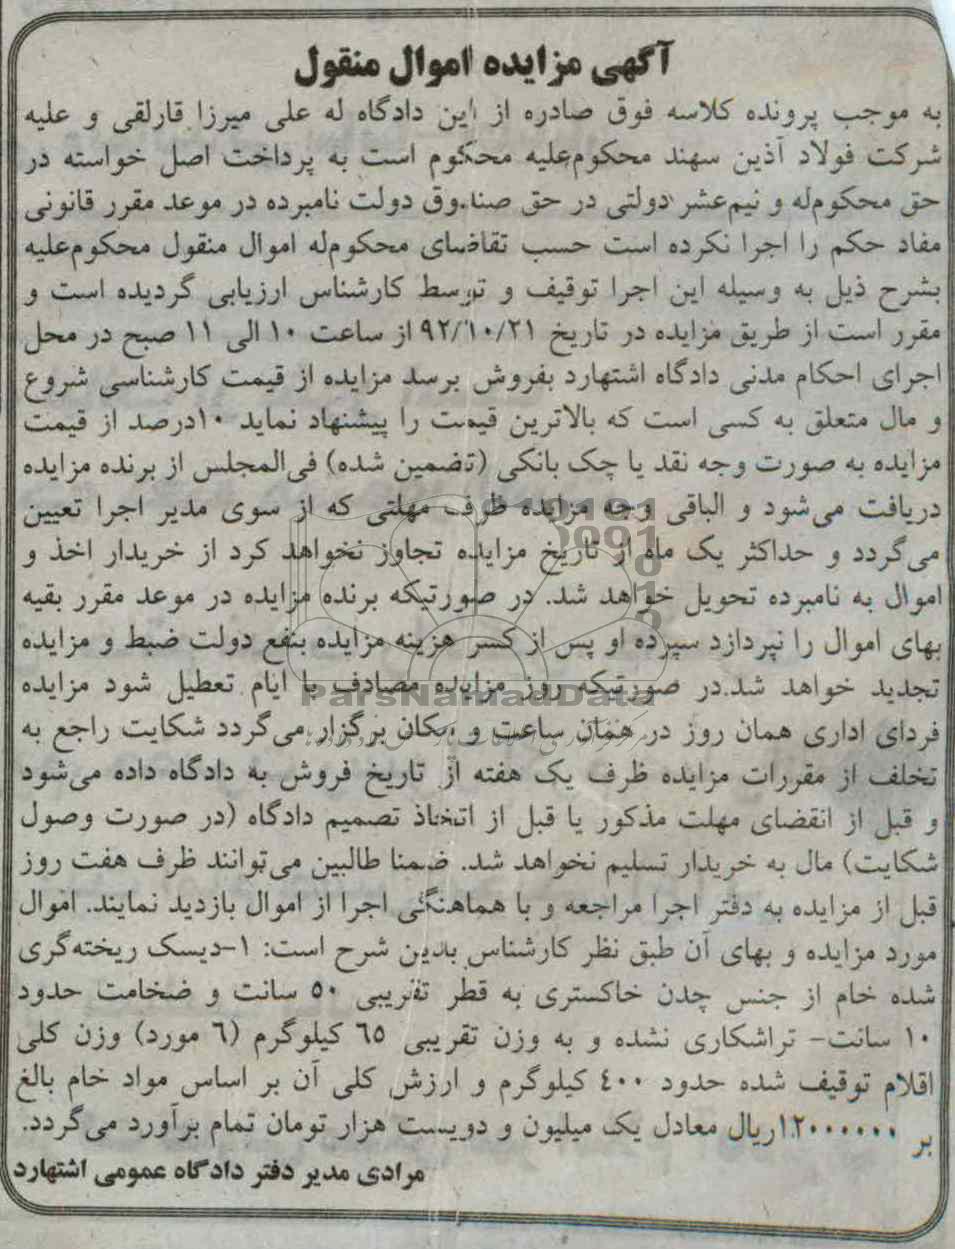 آگهی مزایده اموال منقول
به موجب پرونده کلاسه فوق صادره از این دادگاه له علی میرزا قارلقی و علیه
شرکت فولاد آذین سهند محکوم‌علیه محکوم است به پرداخت اصل خواسته در
حق محکوم‌له و نیم‌عشر دولتی در حق صندوق دولت نامبرده در موعد مقرر قانونی
مفاد حکم را اجرا نکرده است حسب تقاضای محکوم‌له اموال منقول محکوم‌علیه
بشرح ذیل به وسیله این اجرا توقیف و توسط کارشناس ارزیابی گردیده است و
مقرر است از طریق مزایده در تاریخ ۹۲/۱۰/۲۱ از ساعت ۱۰ الی ۱۱ صبح در محل
اجرای احکام مدنی دادگاه اشتهارد بفروش برسد مزایده از قیمت کارشناسی شروع
و مال متعلق به کسی است که بالاترین قیمت را پیشنهاد نماید ۱۰درصد از قیمت
مزایده به صورت وجه نقد یا چک بانکی (تضمین شده) فی‌المجلس از برنده مزایده
دریافت می‌شود و الباقی وجه مزایده ظرف مهلتی که از سوی مدیر اجرا تعیین
می‌گردد و حداکثر یک ماه از تاریخ مزایده تجاوز نخواهد کرد از خریدار اخذ و
اموال به نامبرده تحویل خواهد شد. در صورتیکه برنده مزایده در موعد مقرر بقیه
بهای اموال را نپردازد سپرده او پس از کسر هزینه مزایده بنفع دولت ضبط و مزایده
تجدید خواهد شد.در صورتیکه روز مزایده مصادف با ایام تعطیل شود مزایده
ParsNamadData
فردای اداری همان روز در همان ساعت و مکان برگزار می‌گردد شکایت راجع به
تخلف از مقررات مزایده ظرف یک هفته از تاریخ فروش به دادگاه داده می‌شود
و قبل از انقضای مهلت مذکور یا قبل از اتخاذ تصمیم دادگاه (در صورت وصول
شکایت) مال به خریدار تسلیم نخواهد شد. ضمنا طالبین می‌توانند ظرف هفت روز
قبل از مزایده به دفتر اجرا مراجعه و با هماهنگی اجرا از اموال بازدید نمایند. اموال
مورد مزایده و بهای آن طبق نظر کارشناس بدین شرح است: ۱-دیسک ریخته‌گری
شده خام از جنس چدن خاکستری به قطر تقریبی ۵۰ سانت و ضخامت حدود
۱۰ سانت- تراشکاری نشده و به وزن تقریبی ٦٥ کیلوگرم (٦ مورد) وزن کلی
اقلام توقیف شده حدود ٤٠٠ کیلوگرم و ارزش کلی آن بر اساس مواد خام بالغ
بر ۱۲۰۰۰۰۰۰ریال معادل یک میلیون و دویست هزار تومان تمام برآورد می‌گردد.
مرادی مدیر دفتر دادگاه عمومی اشتهارد